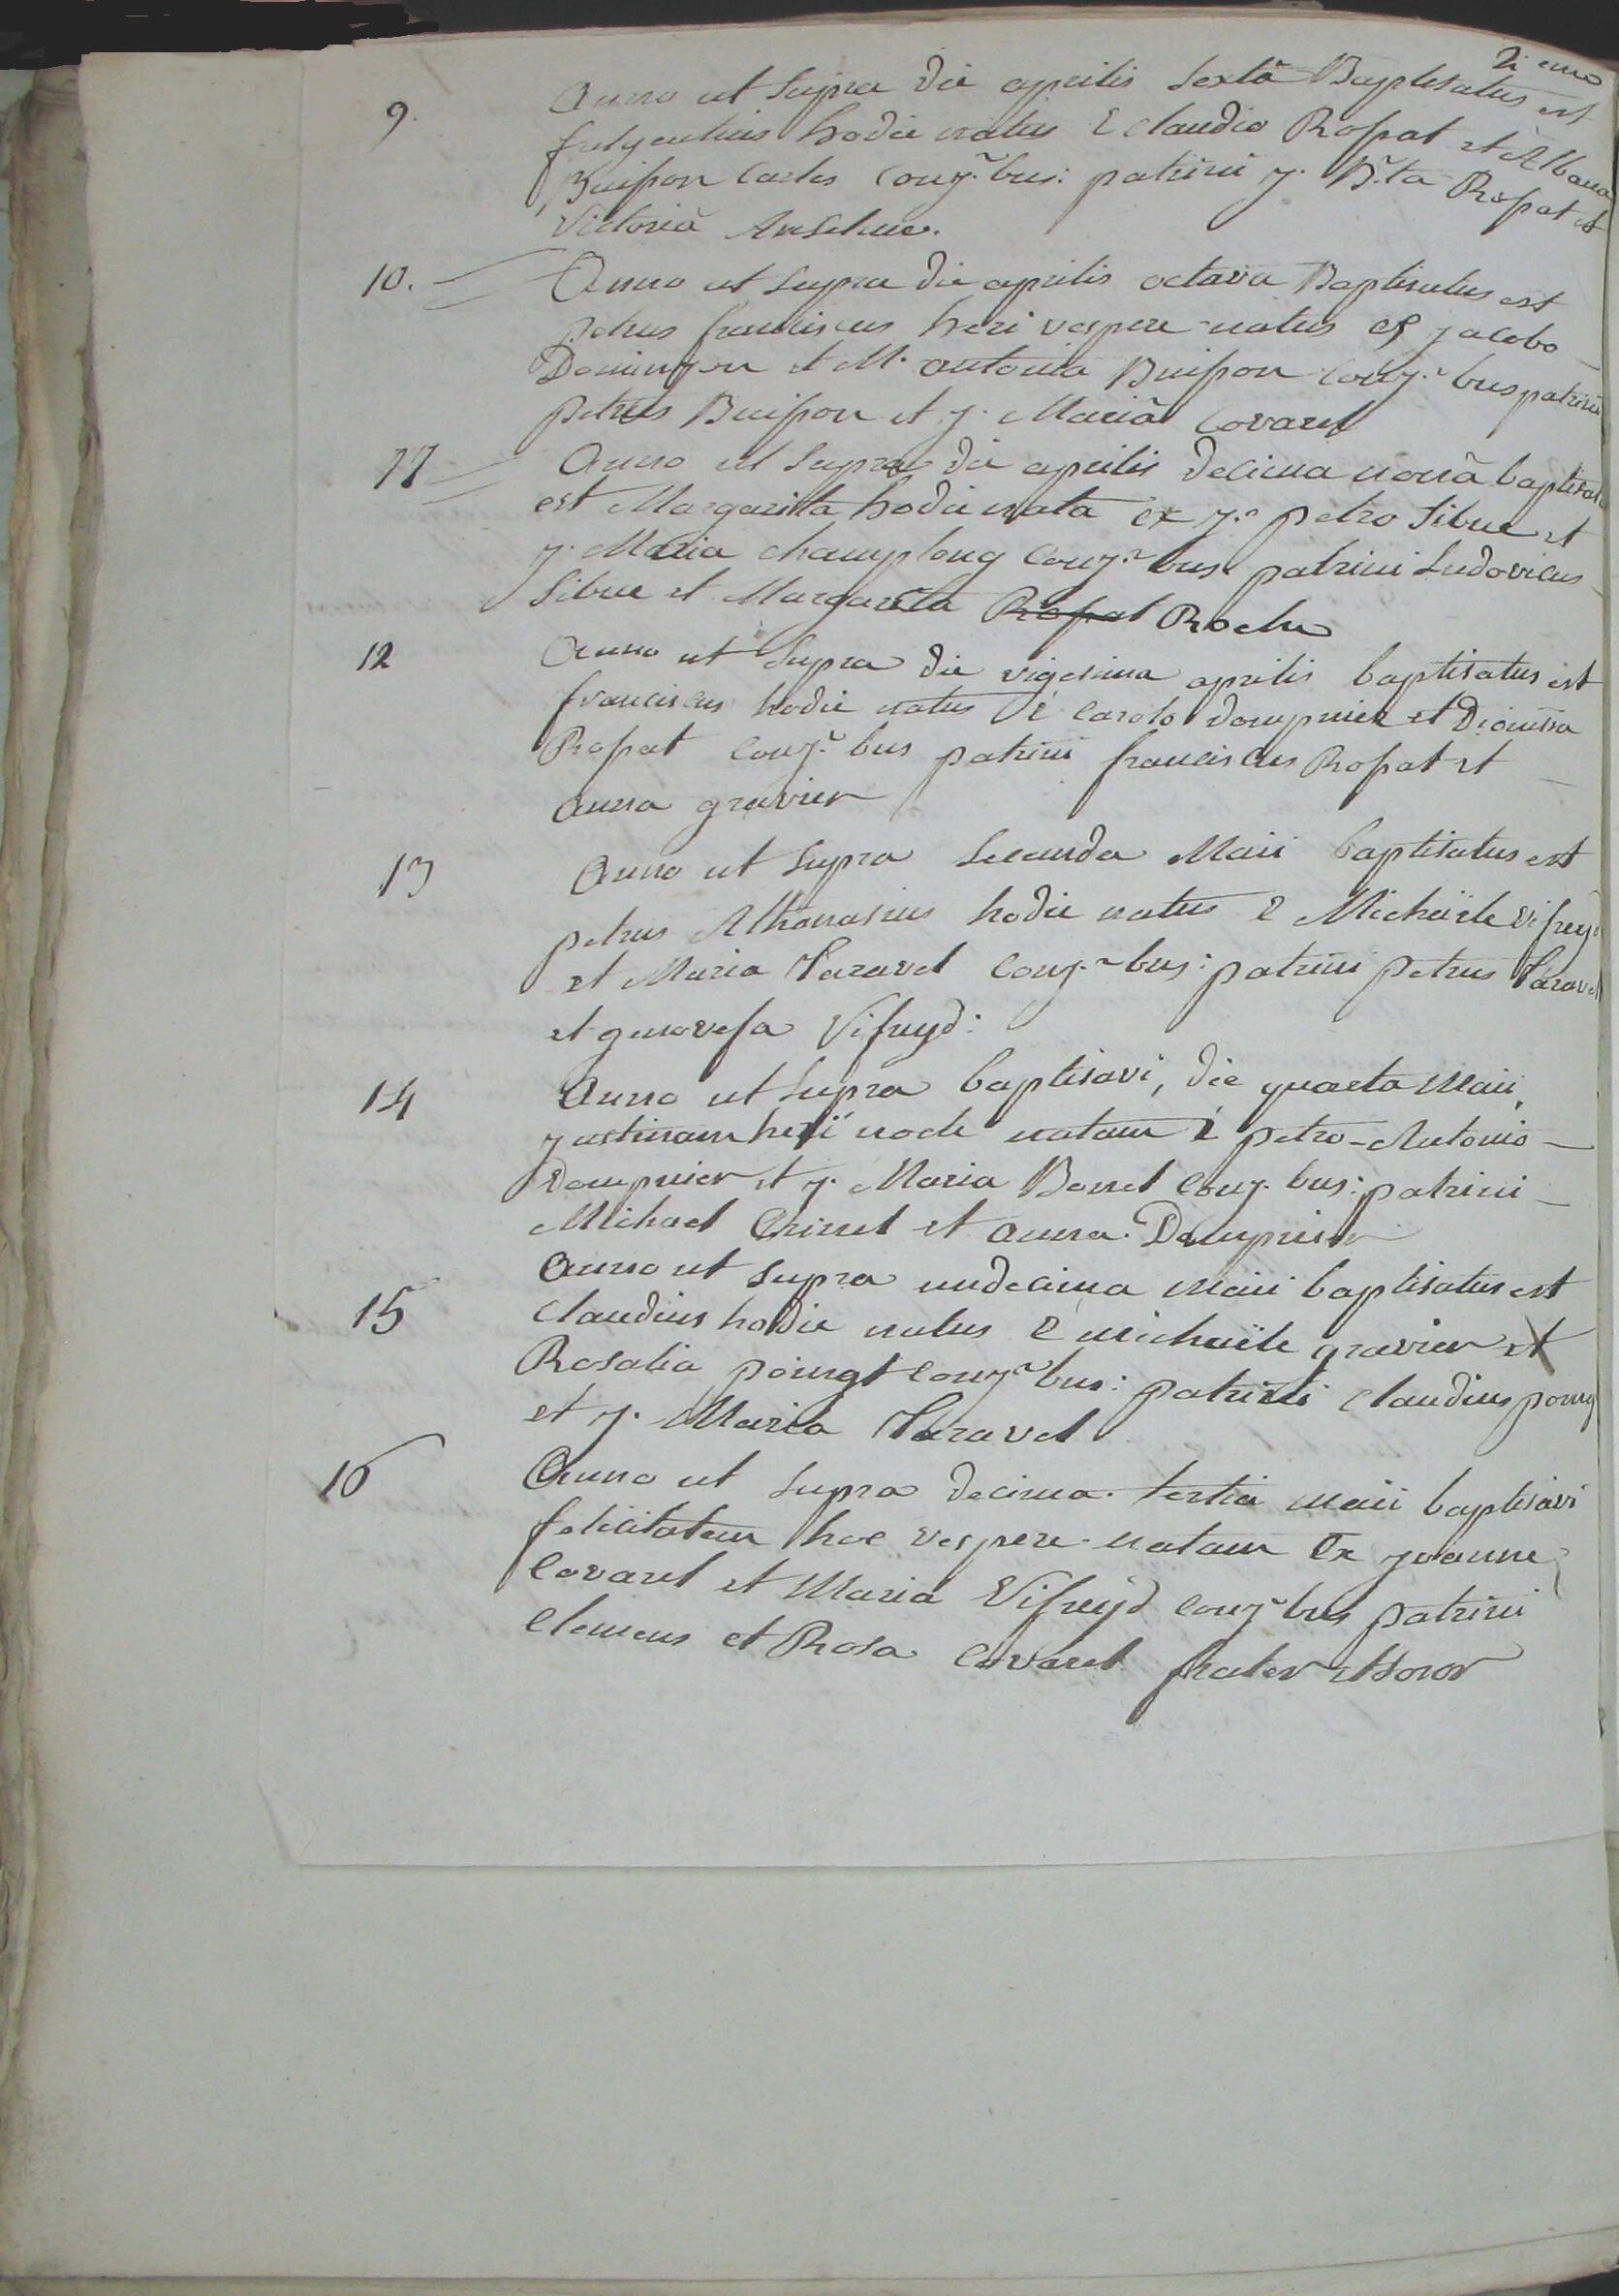 9. Anno ut supra die aprilis sextâ Baptisatus est
fulgentius hodie natus è claudio Rossat et Albana
Buisson Carles conj.~bus: patrini j. B.ta Rossat et
Victoriâ Anselme.
10. Anno ut supra die aprilis octava Baptisatus est
petrus franciscus heri vespere natus ex jacobo
Domingen et M. antonia Buisson conj.~bus patrini
petrus Buisson et j. Mariâ Covarel
11 Anno ut supra die aprilis decima nonâ baptisat
est Margarita hodie nata ex j.e petro Sibue et
j. Maria champlong conj.~bus patrini Ludovicus
Sibue et Margarita Rossat Roche
12 Anno ut supra die vigesima aprilis baptisatus est
franciscus hodie natus è carolo dompnier et Dionisia
Rossat conj.~bus patrini franciscus Rossat et
anna gravier
13 Anno ut supra secunda Maii baptisatus est
petrus Athanasius hodie natus è Michaële Vifreyd
et Maria Taravel conj.~bus: patrini petrus Taravel
et genovefa Vifreyd:
14 Anno ut supra baptisavi, die quarta Maii,
justinam heri nocte natam è petro-Antonio
Dompnier et j. Maria Borrel conj. bus: patrini
Michael et anna Dompnier
15 Anno ut supra undecima maii baptisatus est
claudius hodie natus è michaële gravier et
Rosalia poingt conj.~bus: patrini claudius poing
et j. Maria Taravel
16 Anno ut supra decima tertia maii baptisavi
felicitatem hoc vespere natam ex joanne
Covarel et Maria Vifreyd conj~bus patrini
Clemens et Rosa Covarel frater et soror